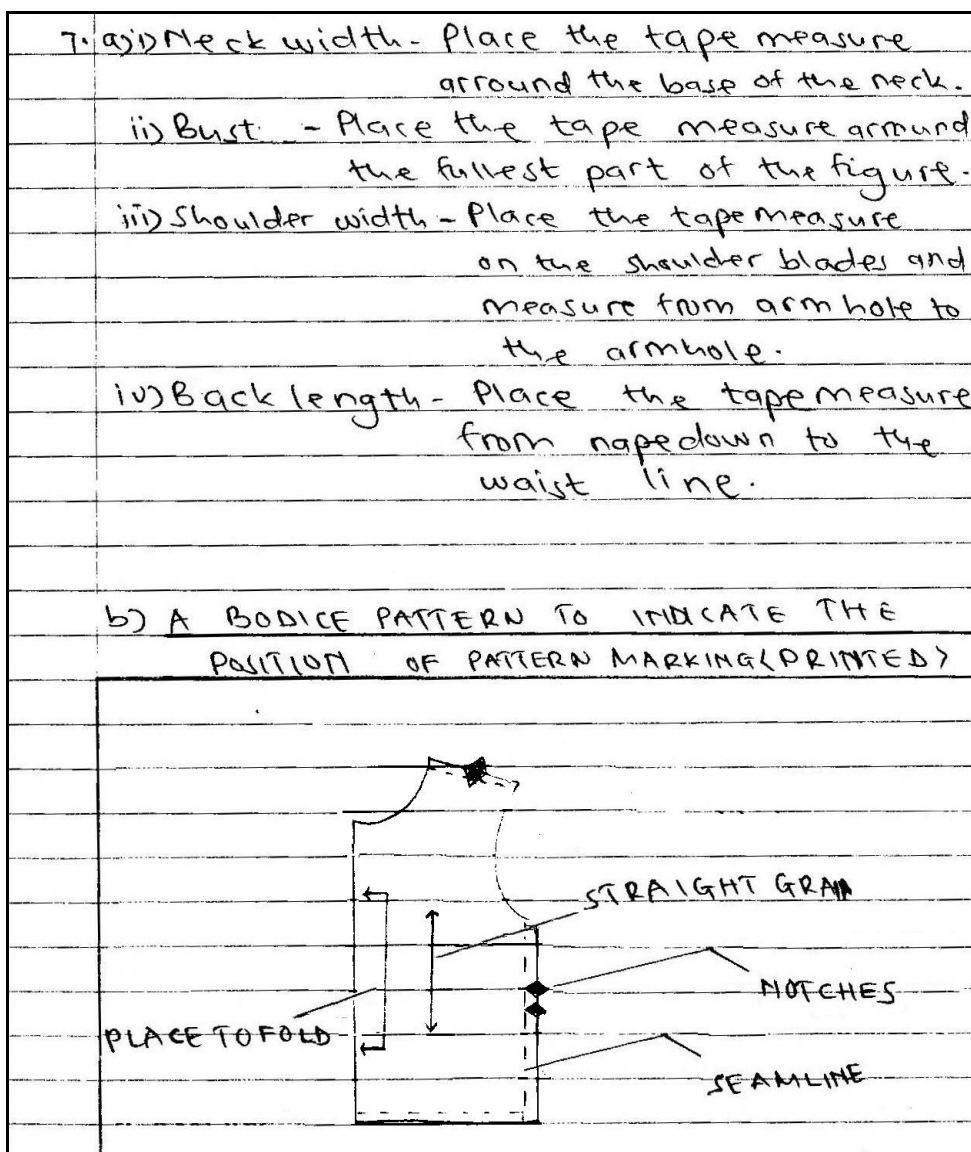 7. a)i) Neck width - Place the tape measure
arround the base of the neck.
ii) Bust - Place the tape measure around
the fullest part of the figure.
iii) Shoulder width - Place the tape measure
on the shoulder blades and
measure from arm hole to
the armhole.
iv) Back length - Place the tape measure
from nape down to the
waist line.
b) A BODICE PATTERN TO INDICATE THE
POSITION OF PATTERN MARKING (PRINTED)
STRAIGHT GRAIN
NOTCHES
PLACE TO FOLD
SEAMLINE